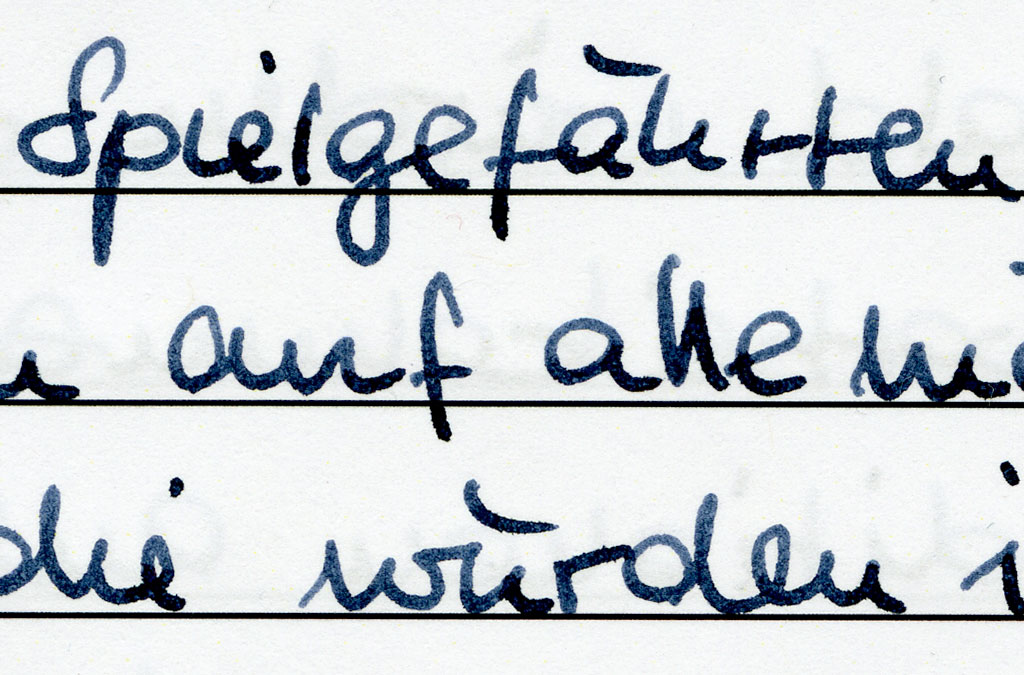 Spielgefährten
auf alle
die würden